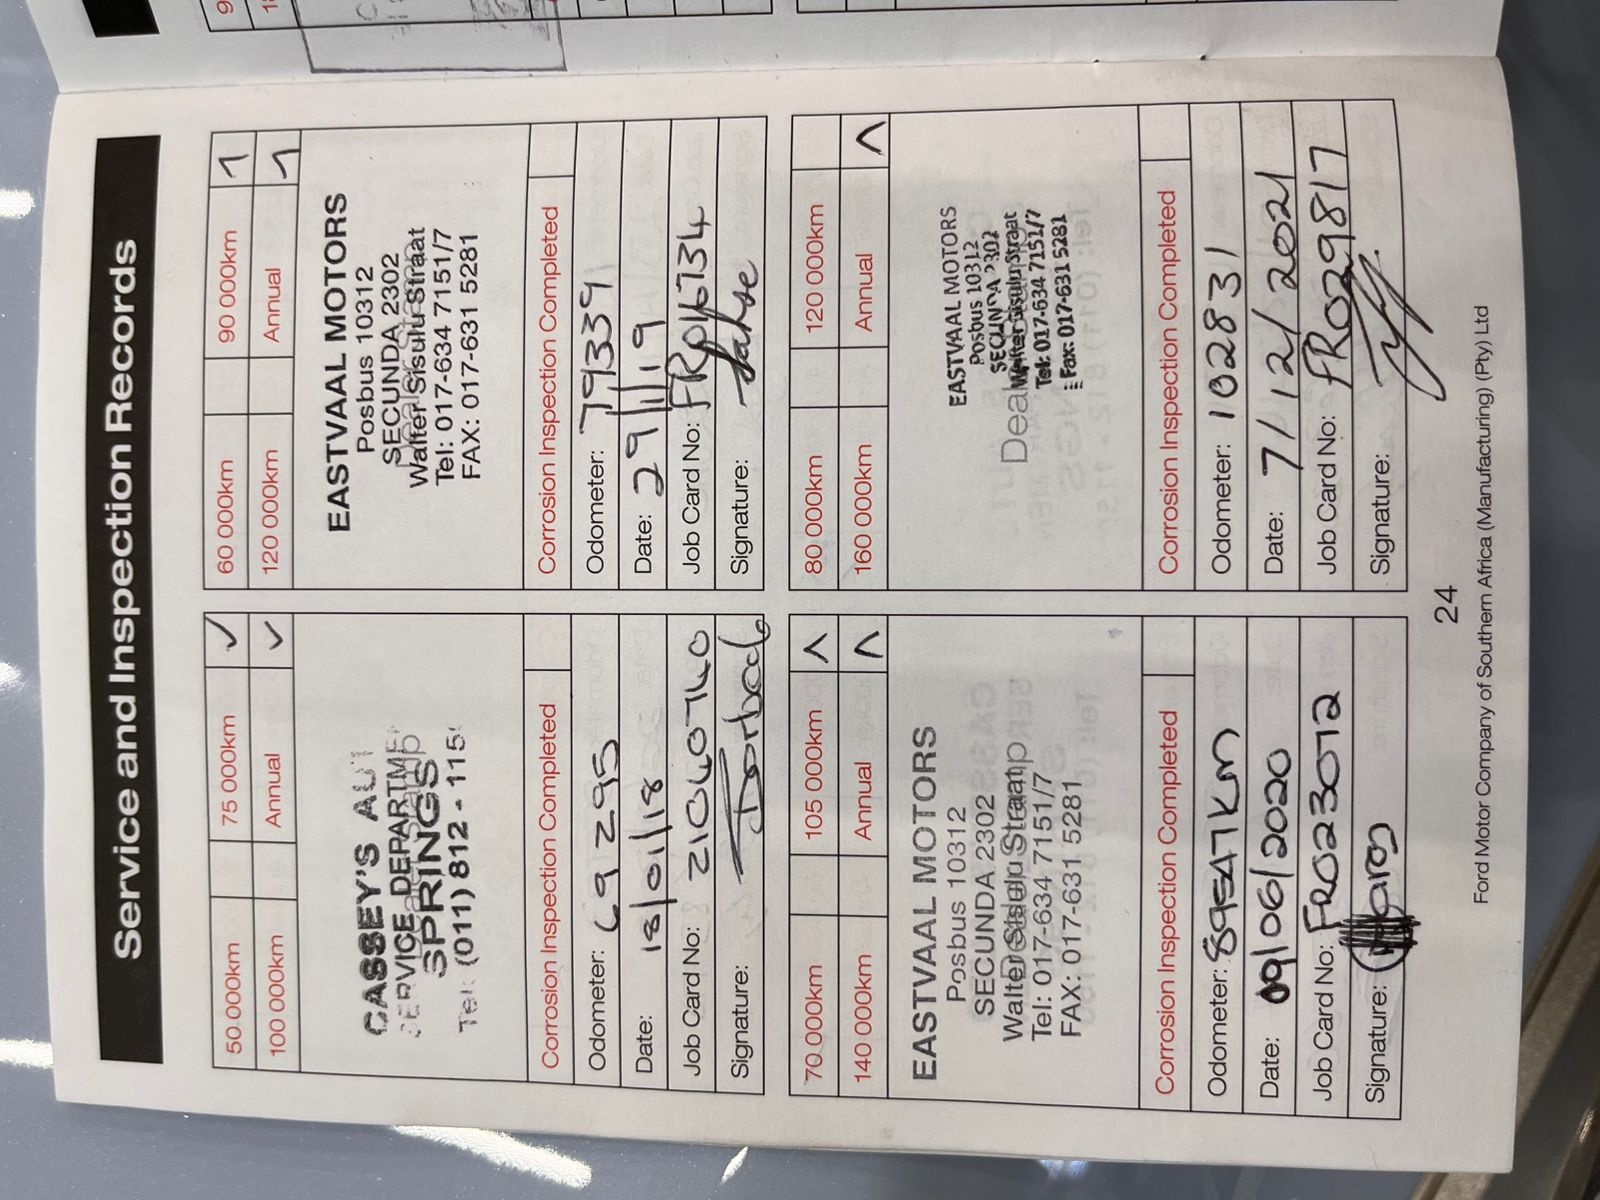 Service and Inspection Records
50 000km 75 000km ✓
100 000km Annual ✓
CASSEY'S AUT
SERVICE DEPARTME
SPRINGS
Tel: (011) 812 - 115
Corrosion Inspection Completed
Odometer: 69 295
Date: 18/01/18
Job Card No:
Signature:
60 000km 90 000km
120 000km Annual
EASTVAAL MOTORS
Posbus 10312
SECUNDA 2302
Walter Sisulu Straat
Tel: 017-634 7151/7
FAX: 017-631 5281
Corrosion Inspection Completed
Odometer: 79339
Date: 29/11/19
Job Card No: FR016734
Signature:
70 000km 105 000km
140 000km Annual
EASTVAAL MOTORS
Posbus 10312
SECUNDA 2302
Walter Sisulu Straat
Tel: 017-634 7151/7
FAX: 017-631 5281
Corrosion Inspection Completed
Odometer:
Date: 09/06/2020
Job Card No: FR023072
Signature:
80 000km 120 000km
160 000km Annual
EASTVAAL MOTORS
Posbus 10312
SECUNDA 2302
Walter Sisulu Straat
Tel: 017-634 7151/7
Fax: 017-631 5281
Corrosion Inspection Completed
Odometer: 102831
Date: 7/12/2021
Job Card No: FR029817
Signature:
24
Ford Motor Company of Southern Africa (Manufacturing) (Pty) Ltd